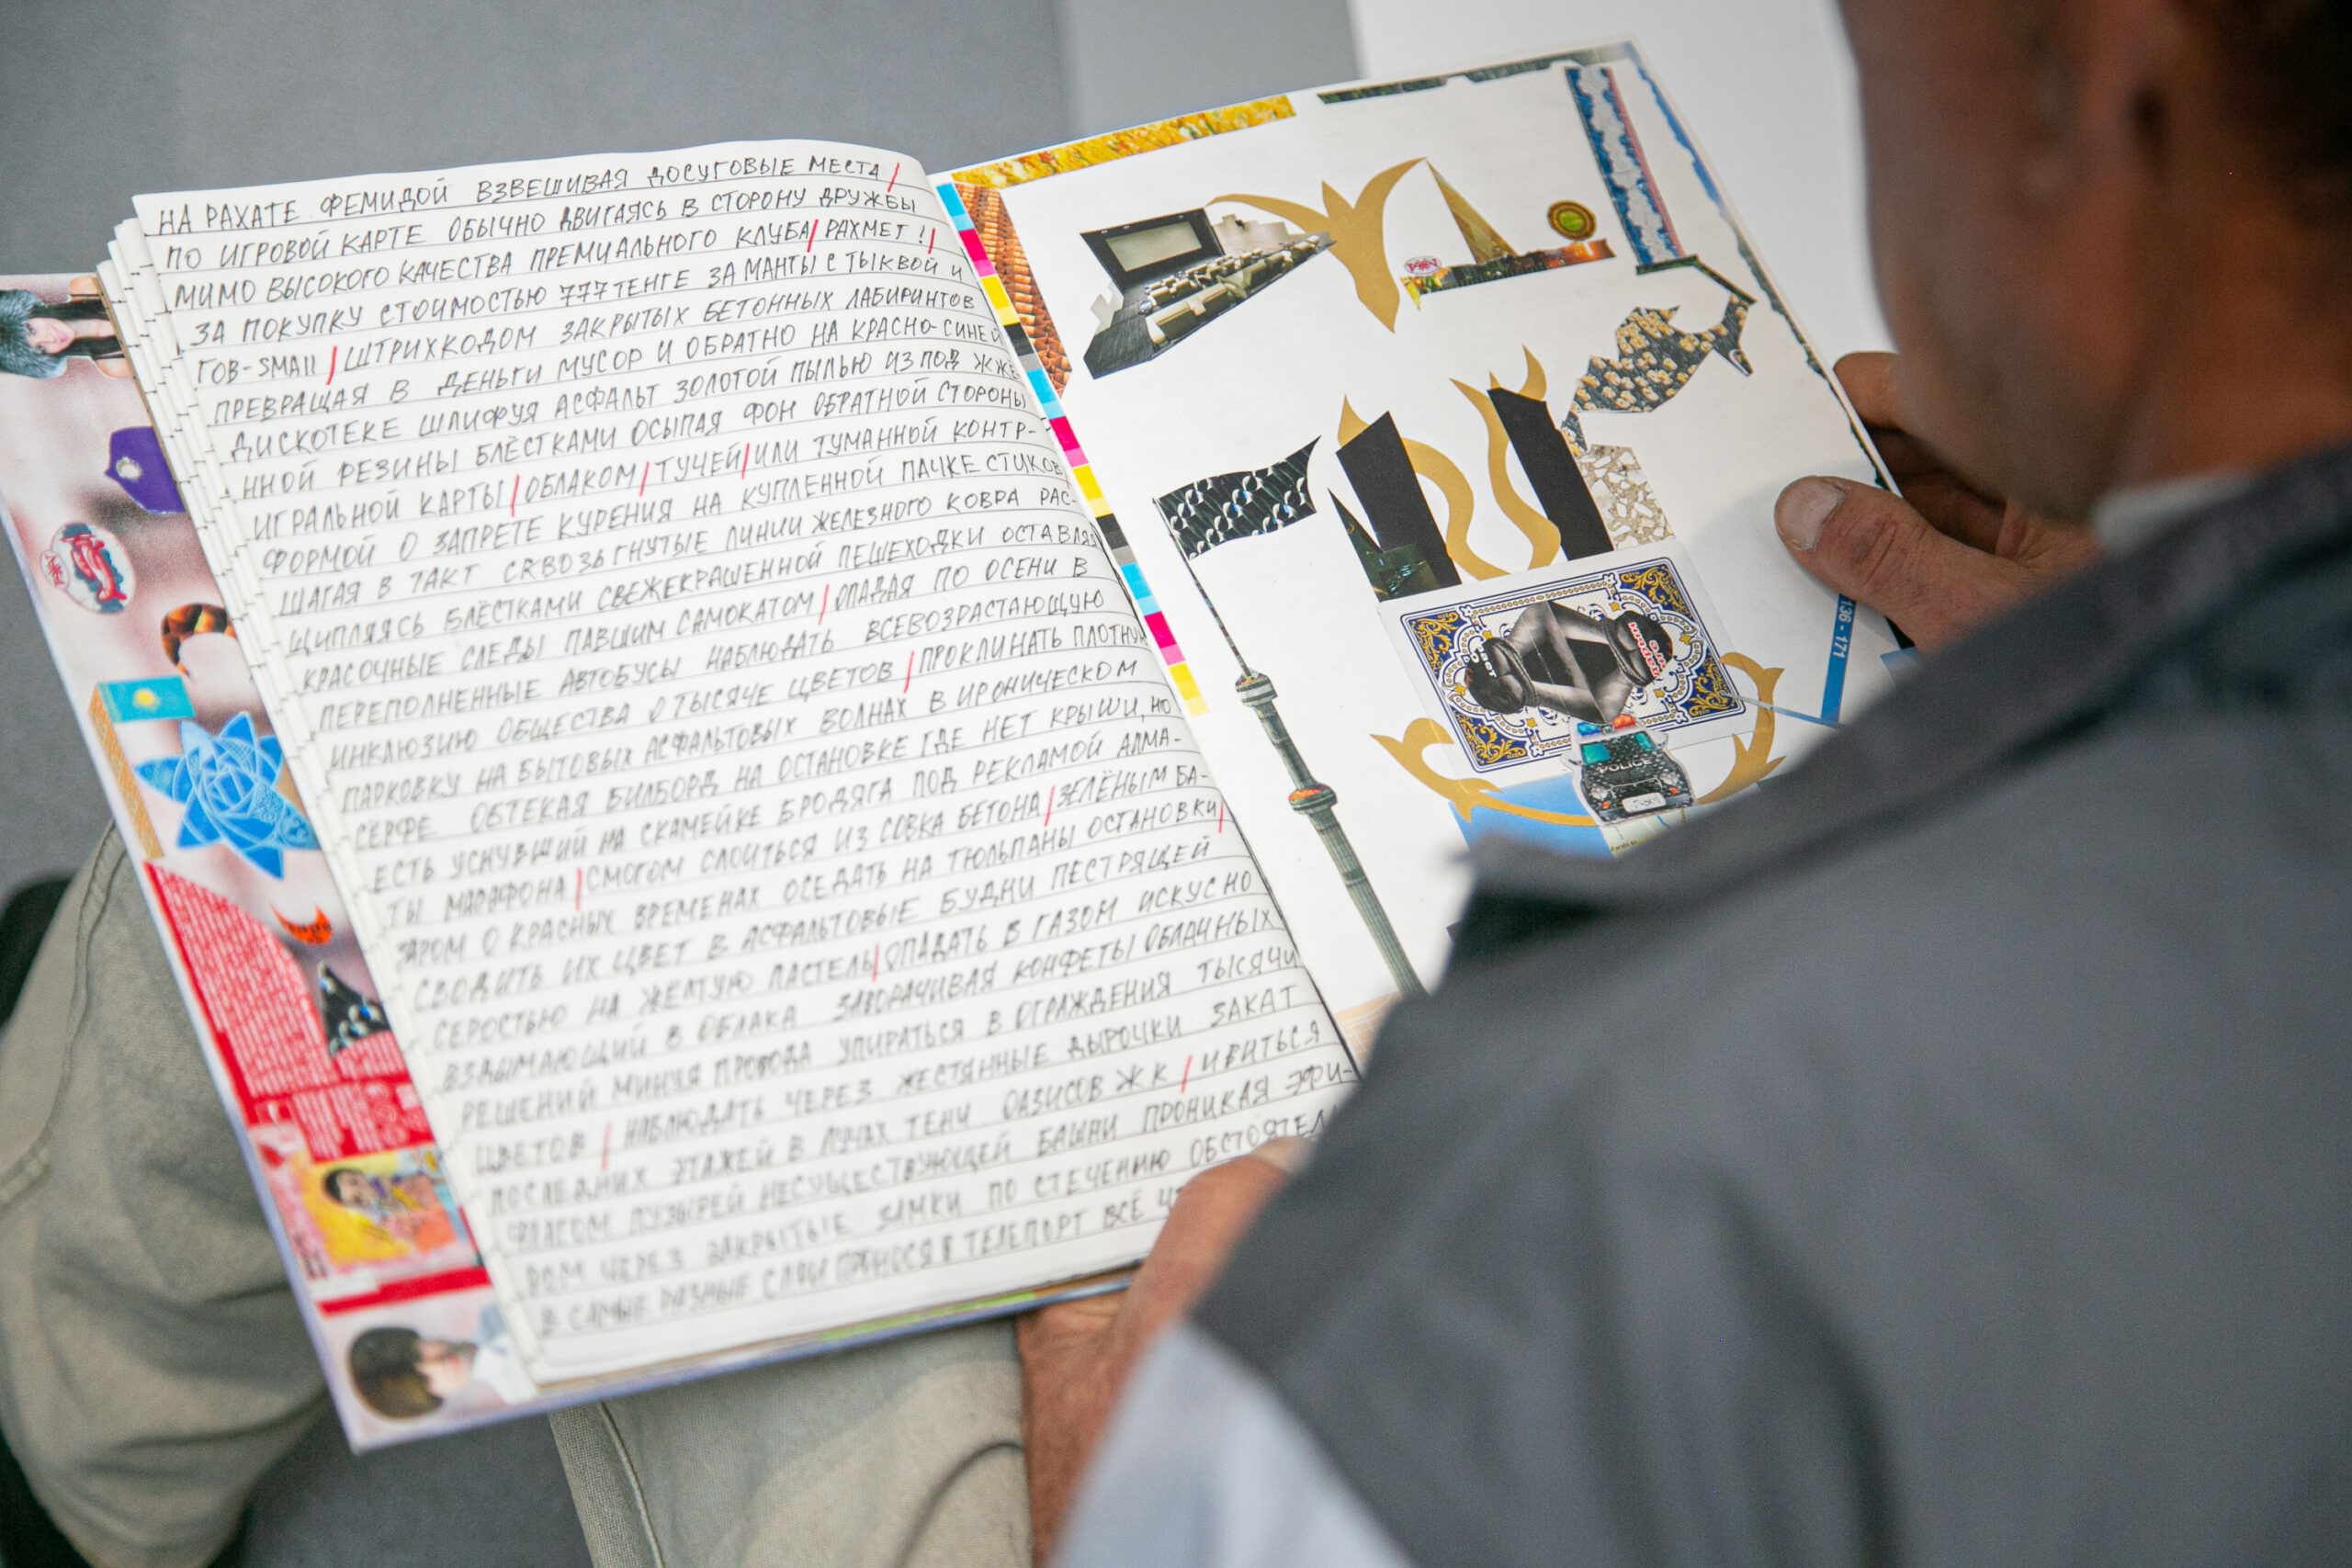 НА РАХАТЕ ФЕМИДОЙ ВЗВЕШИВАЯ ДОСУГОВЫЕ МЕСТА/
ПО ИГРОВОЙ КАРТЕ ОБЫЧНО ДВИГАЯСЬ В СТОРОНУ ДРУЖБЫ
МИМО ВЫСОКОГО КАЧЕСТВА ПРЕМИАЛЬНОГО КЛУБА/РАХМЕТ!/
ЗА ПОКУПКУ СТОИМОСТЬЮ 777 ТЕНГЕ ЗА МАНТЫ С ТЫКВОЙ И
ГОВ-SMAll/ШТРИХКОДОМ ЗАКРЫТЫХ БЕТОННЫХ ЛАБИРИНТОВ
ПРЕВРАЩАЯ В ДЕНЬГИ МУСОР И ОБРАТНО НА КРАСНО-СИНЕЙ
ДИСКОТЕКЕ ШЛИФУЯ АСФАЛЬТ ЗОЛОТОЙ ПЫЛЬЮ ИЗ ПОД ЖЖЕ
ННОЙ РЕЗИНЫ БЛЁСТКАМИ ОСЫПАЯ ФОН ОБРАТНОЙ СТОРОНЫ
ИГРАЛЬНОЙ КАРТЫ/ОБЛАКОМ/ТУЧЕЙ/ИЛИ ТУМАННОЙ КОНТР-
ФОРМОЙ О ЗАПРЕТЕ КУРЕНИЯ НА КУПЛЕННОЙ ПАЧКЕ СТИКОВ
ШАГАЯ В ТАКТ СКВОЗЬ ГНУТЫЕ ЛИНИИ ЖЕЛЕЗНОГО КОВРА РАС-
ЩИПЛЯЯСЬ БЛЁСТКАМИ СВЕЖЕКРАШЕННОЙ ПЕШЕХОДКИ ОСТАВЛЯЯ
КРАСОЧНЫЕ СЛЕДЫ ПАВШИМ САМОКАТОМ/ОПАДАЯ ПО ОСЕНИ В
ПЕРЕПОЛНЕННЫЕ АВТОБУСЫ НАБЛЮДАТЬ ВСЕВОЗРАСТАЮЩУЮ
ИНКЛЮЗИЮ ОБЩЕСТВА О ТЫСЯЧЕ ЦВЕТОВ/ПРОКЛИНАТЬ ПЛОТНУЮ
ПАРКОВКУ НА БЫТОВЫХ АСФАЛЬТОВЫХ ВОЛНАХ В ИРОНИЧЕСКОМ
СЁРФЕ ОБТЕКАЯ БИЛБОРД НА ОСТАНОВКЕ ГДЕ НЕТ КРЫШИ, НО
ЕСТЬ УСНУВШИЙ НА СКАМЕЙКЕ БРОДЯГА ПОД РЕКЛАМОЙ АЛМА-
ТЫ МАРАФОНА/СМОГОМ СЛОИТЬСЯ ИЗ СОВКА БЕТОНА/ЗЕЛЁНЫМ БА-
ЗАРОМ О КРАСНЫХ ВРЕМЕНАХ ОСЕДАТЬ НА ТЮЛЬПАНЫ ОСТАНОВКИ/
СВОДИТЬ ИХ ЦВЕТ В АСФАЛЬТОВЫЕ БУДНИ ПЕСТРЯЩЕЙ
СЕРОСТЬЮ НА ЖЁЛТУЮ ПАСТЕЛЬ/ОПАДАТЬ В ГАЗОМ ИСКУСНО
ВЗДЫМАЮЩИЙ В ОБЛАКА ЗАВОРАЧИВАЯ КОНФЕТЫ ОБЛАЧНЫХ
РЕШЕНИЙ МИНУЯ ПРОВОДА УПИРАТЬСЯ В ОГРАЖДЕНИЯ ТЫСЯЧИ
ЦВЕТОВ/НАБЛЮДАТЬ ЧЕРЕЗ ЖЕСТЯННЫЕ ДЫРОЧКИ ЗАКАТ
ПОСЛЕДНИХ ЭТАЖЕЙ В ЛУЧАХ ТЕНИ ОАЗИСОВ ЖК/И ВИТЬСЯ
ФЛАГОМ ПУЗЫРЕЙ НЕСУЩЕСТВУЮЩЕЙ БАШНИ ПРОНИКАЯ ЭФИ-
РОМ ЧЕРЕЗ ЗАКРЫТЫЕ ЗАМКИ ПО СТЕЧЕНИЮ ОБСТОЯТЕЛ
В САМЫЕ РАЗНЫЕ СЛОИ ПРИНОСЯ В ТЕЛЕПОРТ ВСЁ
POLICE
136 - 171